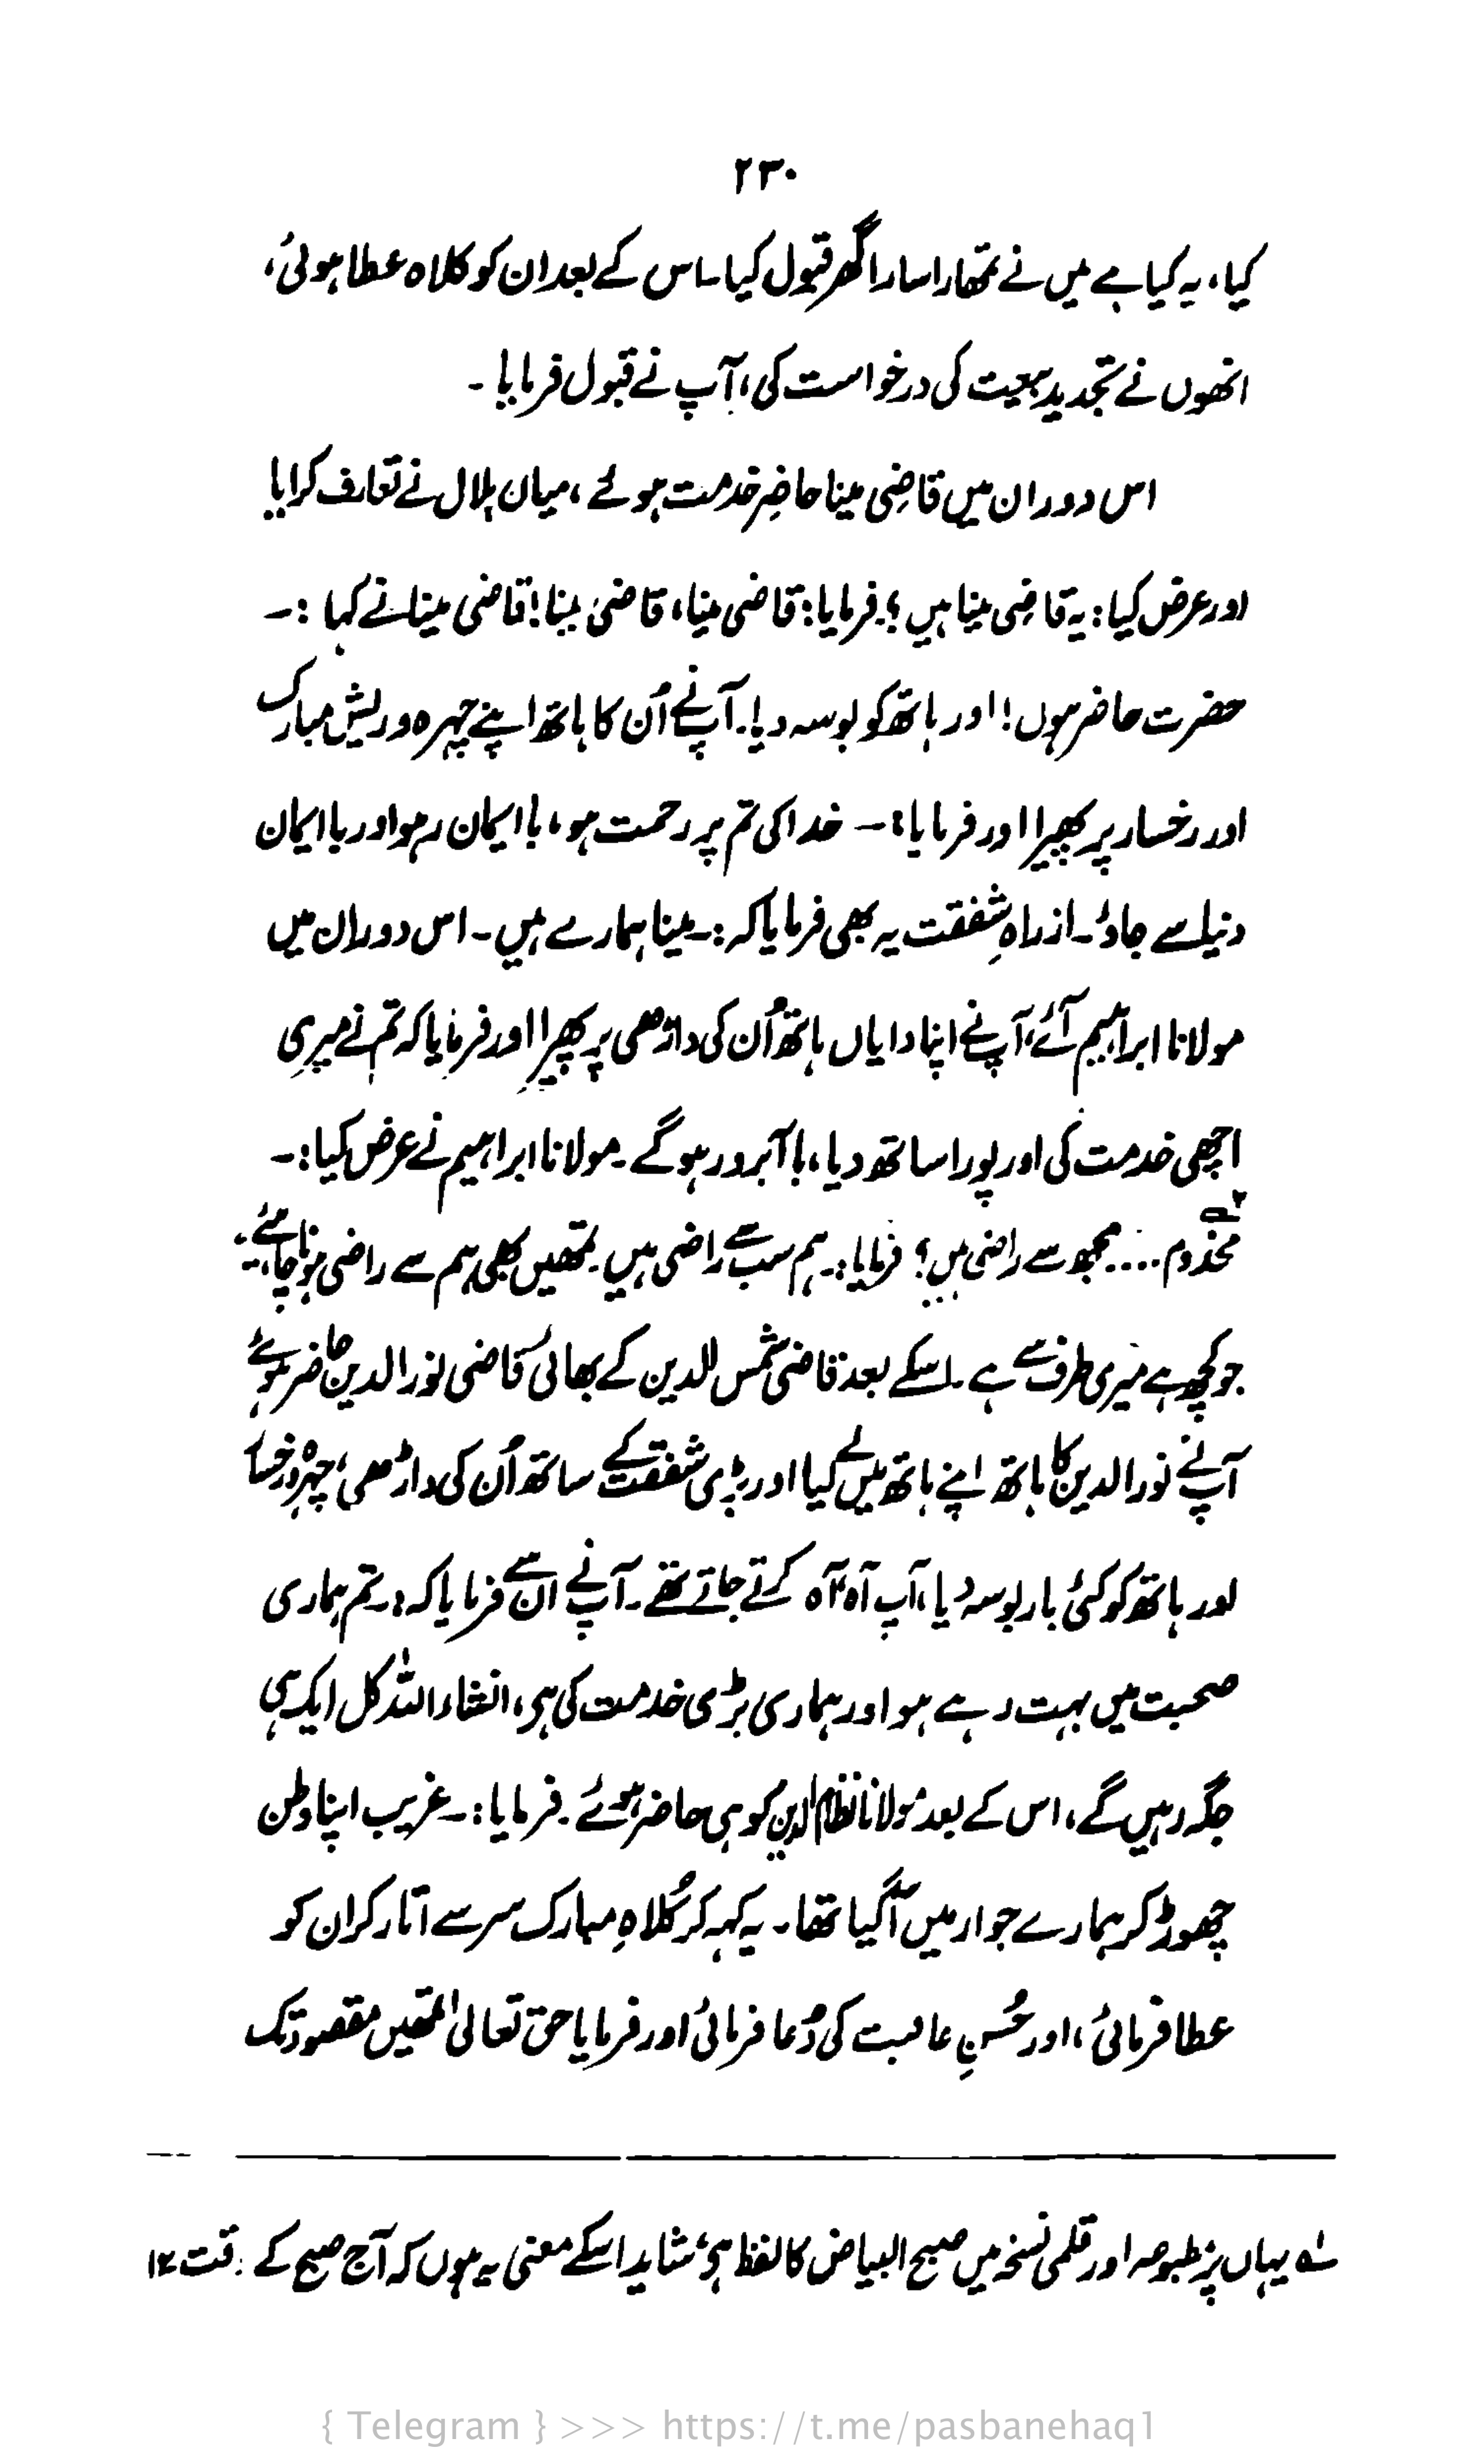 ۲۳۰
کیا، یہ کیا ہے میں نے تمھارا سارا گھر قبول کیا۔ اس کے بعد ان کو کلاہ عطا ہوئی،
انھوں نے تجدید بیعت کی درخواست کی، آپ نے قبول فرمایا۔
اس دوران میں قاضی مینا حاضرِ خدمت ہوئے، میاں ہلال نے تعارف کرایا
اور عرض کیا: یہ قاضی مینا ہیں؟ فرمایا: قاضی مینا، قاضی مینا! قاضی مینا نے کہا :۔
حضرت حاضر ہوں! اور ہاتھ کو بوسہ دیا۔ آپ نے اُن کا ہاتھ اپنے چہرہ و ریش مبارک
اور رخسار پر پھیرا اور فرمایا:۔ خدا کی تم پر رحمت ہو، با ایمان رہو اور با ایمان
دنیا سے جاؤ۔ ازراہِ شفقت یہ بھی فرمایا کہ :۔ مینا ہمارے ہیں۔ اس دوران میں
مولانا ابراہیم آئے، آپ نے اپنا دایاں ہاتھ اُن کی داڑھی پر پھیرا اور فرمایا کہ تم نے میری
اچھی خدمت کی اور پورا ساتھ دیا، با آبرو رہو گے۔ مولانا ابراہیم نے عرض کیا:۔
مخدوم .... مجھ سے راضی ہیں؟ فرمایا:۔ ہم سب سے راضی ہیں۔ تمھیں بھی ہم سے راضی ہونا چاہئے۔
جو کچھ ہے میری طرف سے ہے۔ اسکے بعد قاضی شمس الدین کے بھائی قاضی نور الدین حاضر ہوئے
آپ نے نور الدین کا ہاتھ اپنے ہاتھ میں لے لیا اور بڑی شفقت کے ساتھ اُن کی داڑھی، چہرہ و رخسار
اور ہاتھ کو کئی بار بوسہ دیا، آپ آہ آہ کرتے جاتے تھے۔ آپ نے ان سے فرمایا کہ:۔ تم ہماری
صحبت میں بہت رہے ہو اور ہماری بڑی خدمت کی ہی، انشاء اللہ کل ایک ہی
جگہ رہیں گے، اس کے بعد مولانا نظام الدین کوہی حاضر ہوئے۔ فرمایا:۔ غریب اپنا وطن
چھوڑ کر ہمارے جوار میں آگیا تھا۔ یہ کہہ کر کُلاہِ مبارک سر سے اتار کر ان کو
عطا فرمائی، اور حُسنِ عاقبت کی دُعا فرمائی اور فرمایا حق تعالیٰ تمھیں مقصود تک
ے یہاں پر مطبوعہ اور قلمی نسخہ میں صبح البیاض کا لفظ ہی، شاید اسکے معنی یہ ہوں کہ آج صبح کے وقت ۱۲
{ Telegram } >>> https://t.me/pasbanehaq1